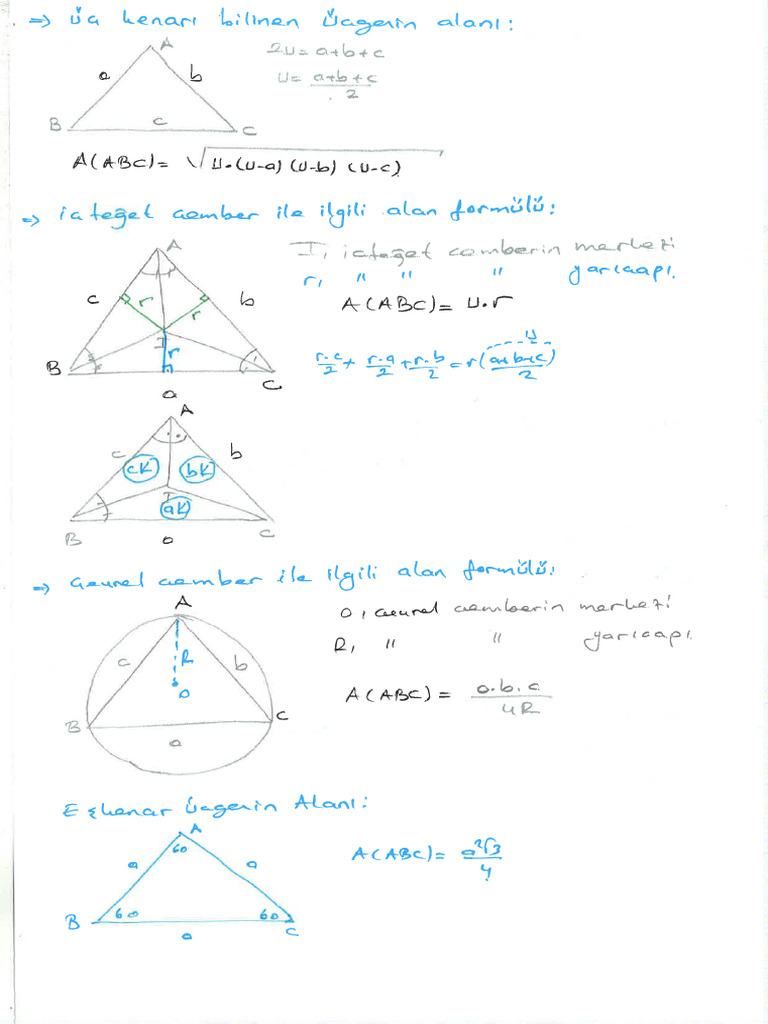 ⇒ Üç kenarı bilinen üçgenin alanı:
A
a b
B c C
2u = a+b+c
u = a+b+c / 2
A(ABC) = √u.(u-a)(u-b)(u-c)
⇒ içteğet çember ile ilgili alan formülü:
A
c r r b
I
r
B a C
I, içteğet çemberin merkezi
r, " " " yarıçapı.
A(ABC) = u.r
r.c/2 + r.a/2 + r.b/2 = r(a+b+c)/2
u
A
c b
cK bK
I
aK
B a C
⇒ Çevrel çember ile ilgili alan formülü:
A
c R b
O
B C
a
O, çevrel çemberin merkezi
R, " " yarıçapı.
A(ABC) = a.b.c / 4R
Eşkenar Üçgenin Alanı:
A
60
a a
B 60 60 C
a
A(ABC) = a²√3 / 4